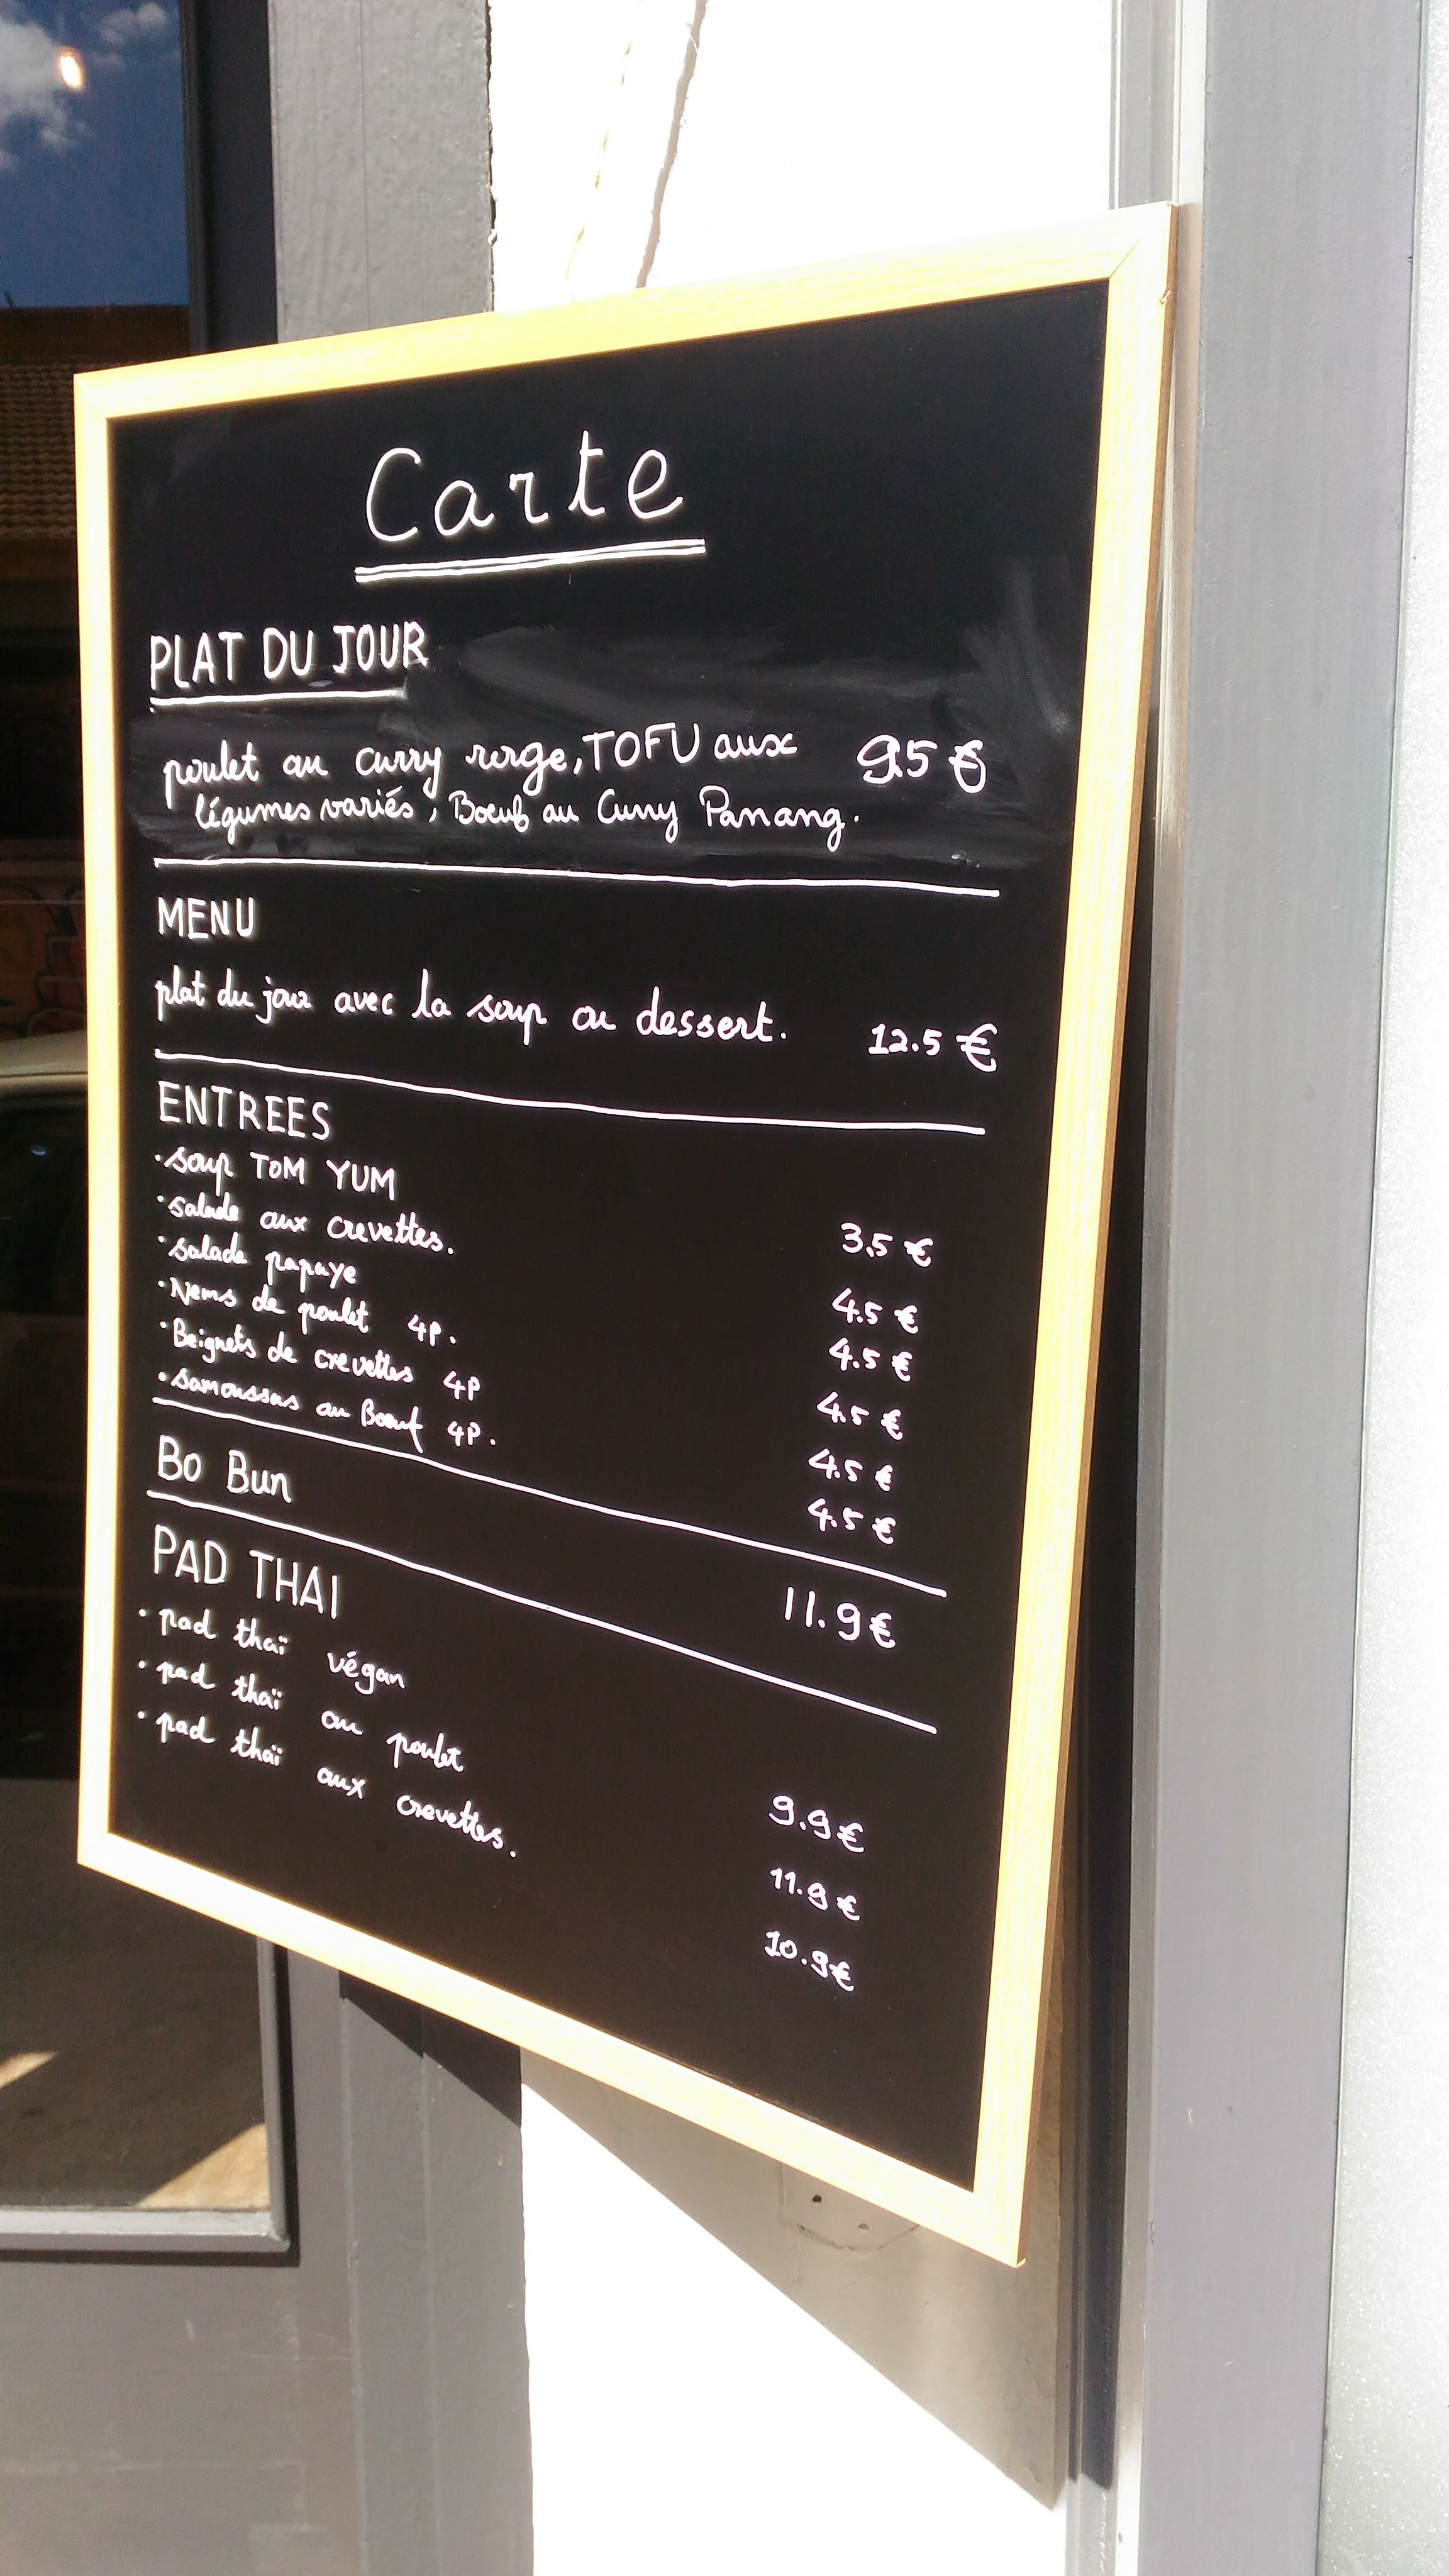 Carte
PLAT DU JOUR
poulet au curry rouge, TOFU aux 9.5 €
légumes variés, Boeuf au Curry Panang.
MENU
plat du jour avec la soup ou dessert. 12.5 €
ENTREES
· soup TOM YUM 3.5 €
· salade aux crevettes. 4.5 €
· salade papaye 4.5 €
· Nems de poulet 4P. 4.5 €
· Beignets de crevettes 4P 4.5 €
· samoussas au Boeuf 4P. 4.5 €
Bo Bun 11.9 €
PAD THAI
· pad thaï végan 9.9 €
· pad thaï au poulet 11.9 €
· pad thaï aux crevettes. 10.9 €